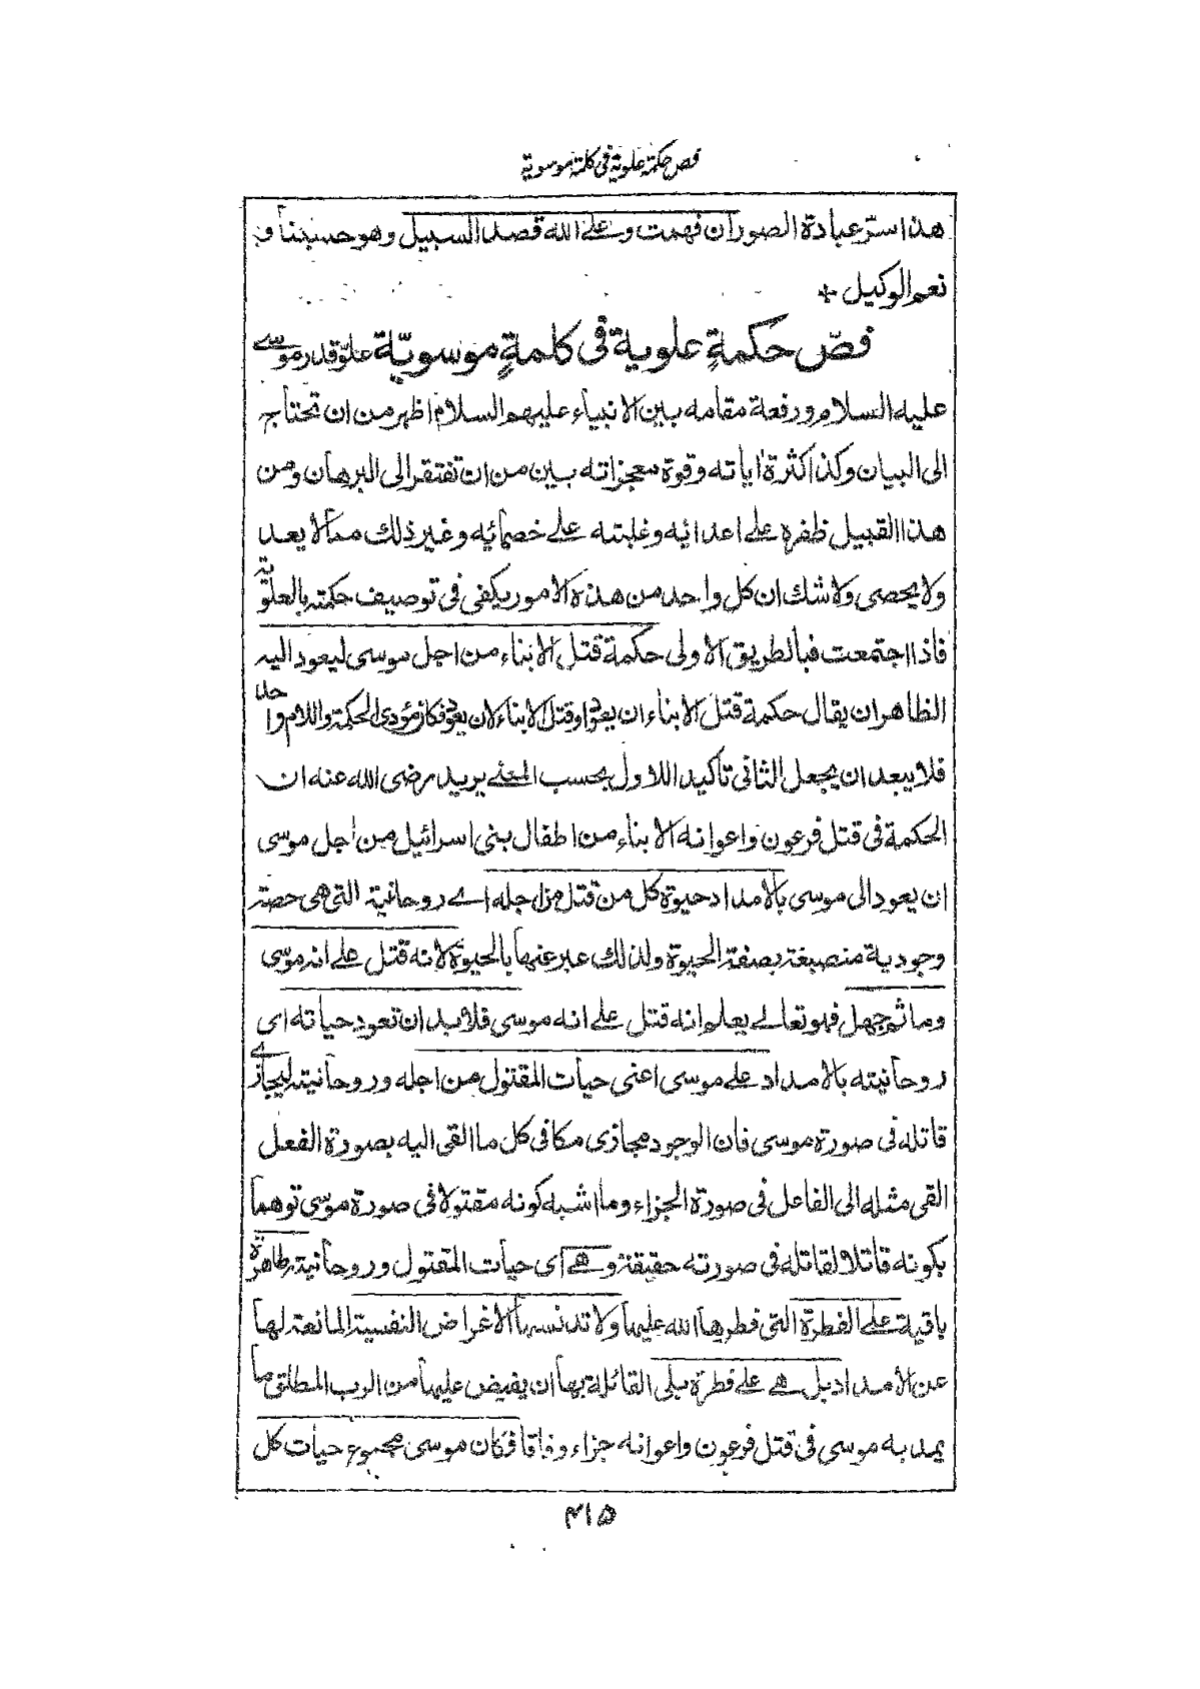 فص حكمة علوية فى كلمة موسوية
هذا سرّ عبادة الصور ان فهمت وعلى الله قصد السبيل وهو حسبنا و
نعم الوكيل +
فصّ حكمةٍ علوية فى كلمةٍ موسويّة علوّ قدر موسے
عليه السلام ورفعة مقامه بين الانبياء عليهم السلام اظهر من ان تحتاج
الى البيان وكذا كثرة اياته وقوة معجزاته بين من ان تفتقر الى البرهان ومن
هذا القبيل ظفره على اعدائه وغلبته على خصمائه وغير ذلك ممالا يعد
ولا يحصى ولا شك ان كل واحد من هذه الامور يكفى فى توصيف حكمته بالعلوّية
فاذا اجتمعت فبالطريق الاولى حكمة قتل الابناء من اجل موسى ليعود اليه
الظاهر ان يقال حكمة قتل الابناء ان يعود او قتل الابناء لان يعود فكان مؤدى الحكمة واللام واحدا
فلا يبعد ان يجعل الثانى تاكيد اللاول بحسب المعنے يريد رضى الله عنه ان
الحكمة فى قتل فرعون واعوانه الابناء من اطفال بنى اسرائيل من اجل موسى
ان يعود الى موسى بالامداد حيوة كل من قتل من اجله اے روحانية التى هى حصة
وجودية منصبغة بصفة الحيوة ولذلك عبر عنها بالحيوة لانه قتل على انه موسى
وما ثم جهل فهو تعالے يعلم انه قتل على انه موسى فلا بد ان تعود حياته اى
روحانيته بالامداد على موسى اعنى حيات المقتول من اجله وروحانيته ليجازے
قاتله فى صورة موسى فان الوجود مجازى مكافى كل ما القى اليه بصورة الفعل
القى مثله الى الفاعل فى صورة الجزاء وما اشبه كونه مقتولا فى صورة موسى توهما
بكونه قاتلا لقاتله فى صورته حقيقة وهے اى حيات المقتول وروحانية طاهرة
باقية على الفطرة التى فطرها الله عليها ولا تدنسها الاغراض النفسية المانعة لها
عن الامداد بل هے على فطرة بلى القائلة بها ان يفيض عليها من الرب المطلق ما
يمد به موسى فى قتل فرعون واعوانه جزاء وفاقا فكان موسى مجموع حيات كل
۴۱۵